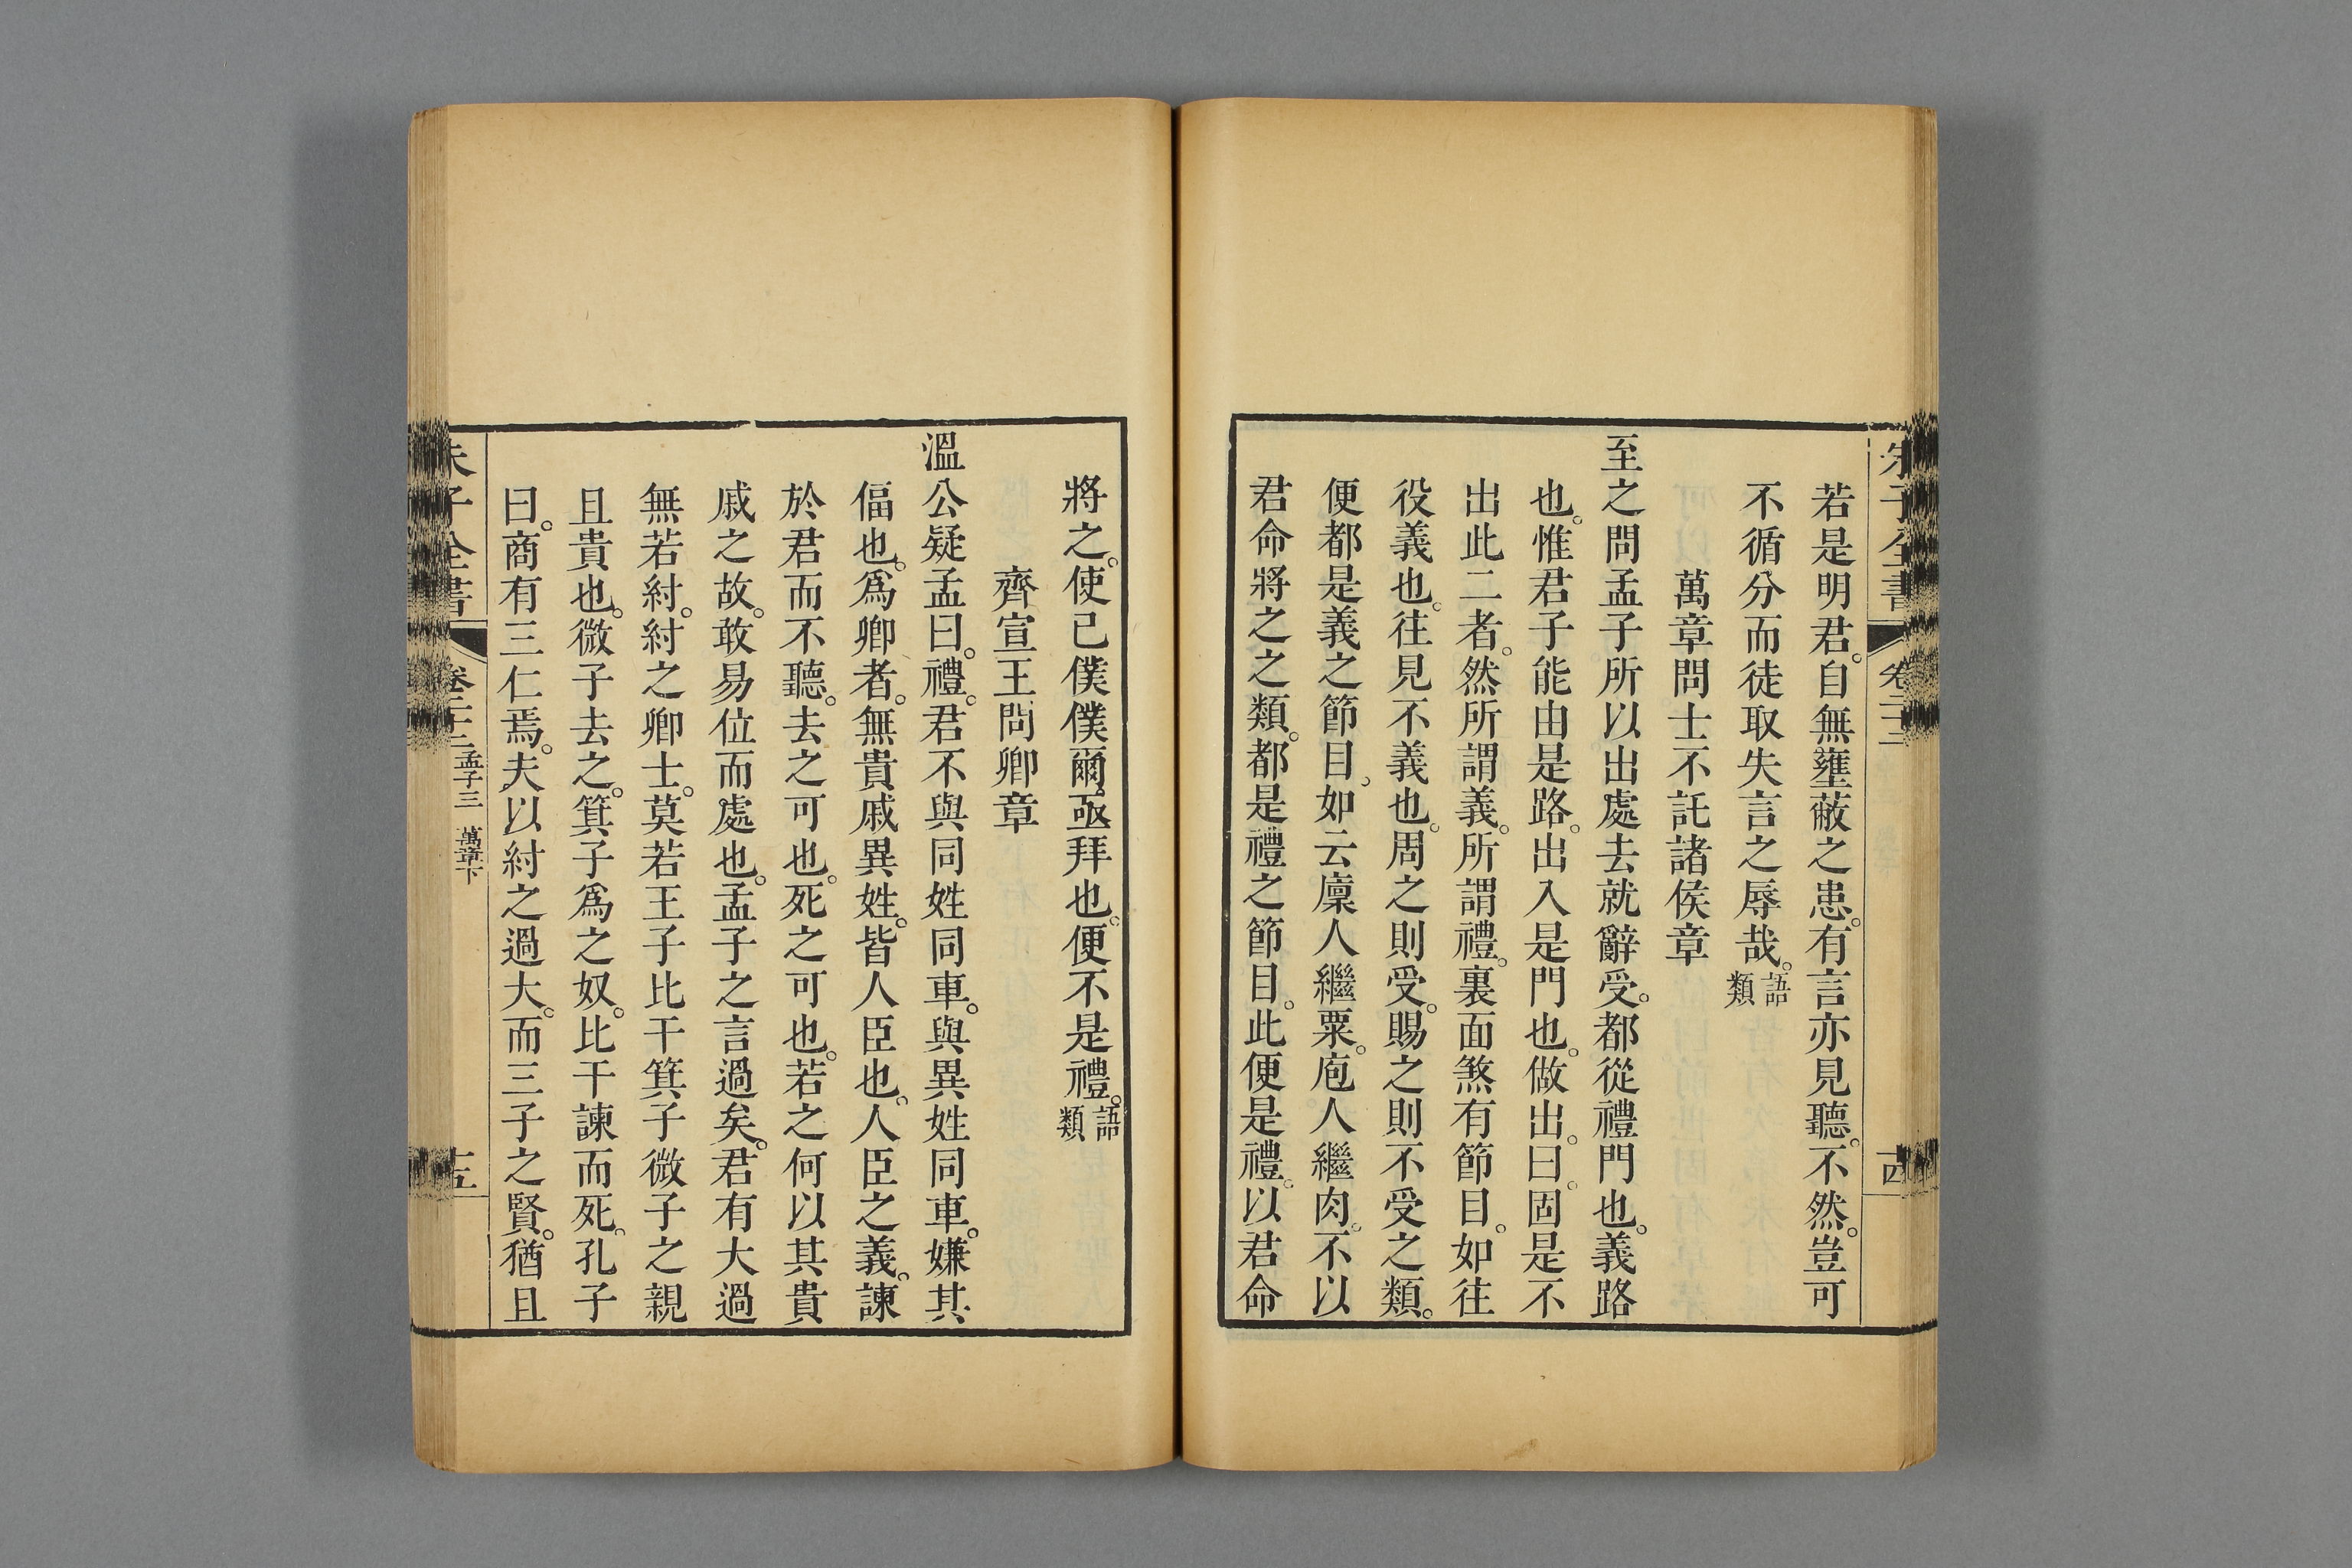 朱子全書 卷二十二 十四
若是明君。自無壅蔽之患。有言亦見聽。不然。豈可
不循分而徒取失言之辱哉。語類
萬章問士不託諸侯章
至之問孟子所以出處去就辭受。都從禮門也。義路
也。惟君子能由是路。出入是門也。做出。曰。固是不
出此二者。然所謂義。所謂禮。裏面煞有節目。如往
役義也。往見不義也。周之則受。賜之則不受之類。
便都是義之節目。如云廩人繼粟。庖人繼肉。不以
君命將之之類。都是禮之節目。此便是禮。以君命
將之。使己僕僕爾亟拜也。便不是禮。語類
齊宣王問卿章
溫公疑孟曰。禮。君不與同姓同車。與異姓同車。嫌其
偪也。爲卿者。無貴戚異姓。皆人臣也。人臣之義。諫
於君而不聽。去之可也。死之可也。若之何以其貴
戚之故。敢易位而處也。孟子之言過矣。君有大過
無若紂。紂之卿士。莫若王子比干箕子微子之親
且貴也。微子去之。箕子爲之奴。比干諫而死。孔子
曰。商有三仁焉。夫以紂之過大。而三子之賢。猶且
朱子全書 卷二十二 孟子三 萬章下 十五